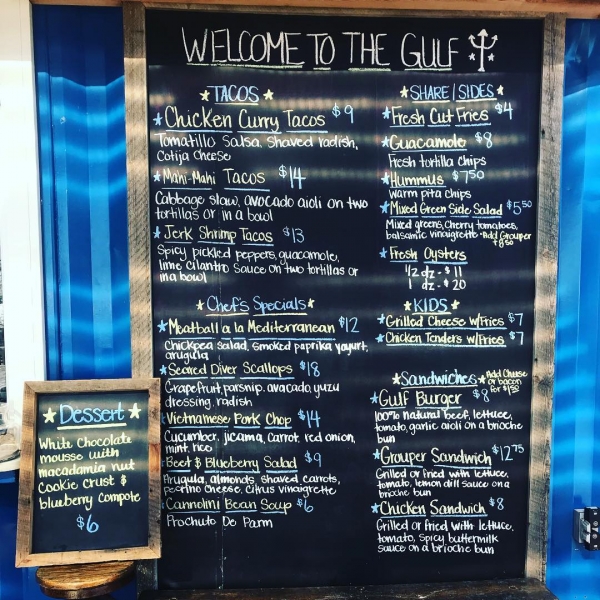 WELCOME TO THE GULF
TACOS
Chicken Curry Tacos $9
Tomatillo Salsa, Shaved radish,
Cotija Cheese
Mahi-Mahi Tacos $14
Cabbage slaw, avocado aioli on two
tortillas or in a bowl
Jerk Shrimp Tacos $13
Spicy pickled peppers, guacamole,
lime cilantro sauce on two tortillas or
in a bowl
Chef's Specials
Meatball a la Mediterranean $12
Chickpea salad, smoked paprika yogurt,
arugula
Seared Diver Scallops $18
Grapefruit, parsnip, avocado, yuzu
dressing, radish
Vietnamese Pork Chop $14
Cucumber, jicama, carrot, red onion,
mint, rice
Beet & Blueberry Salad $9
Arugula, almonds, shaved carrots,
Pecorino cheese, citrus vinaigrette
Cannolini Bean Soup $6
Prochuto De Parm
SHARE/SIDES
Fresh Cut Fries $4
Guacamole $8
Fresh tortilla chips
Hummus $7.50
Warm pita chips
Mixed Green Side Salad $5.50
Mixed greens, cherry tomatoes,
balsamic vinaigrette - Add Grouper
Fresh Oysters
1/2 dz - $11
1 dz - $20
KIDS
Grilled Cheese w/Fries $7
Chicken Tenders w/Fries $7
Sandwiches
Add Cheese
or bacon
for
Gulf Burger $8
100% natural beef, lettuce,
tomato, garlic aioli on a brioche
bun
Grouper Sandwich $12.75
Grilled or fried with lettuce,
tomato, lemon dill sauce on a
brioche bun
Chicken Sandwich $8
Grilled or fried with lettuce,
tomato, spicy buttermilk
sauce on a brioche bun
Dessert
White chocolate
mousse with
macadamia nut
cookie crust &
blueberry compote
$6